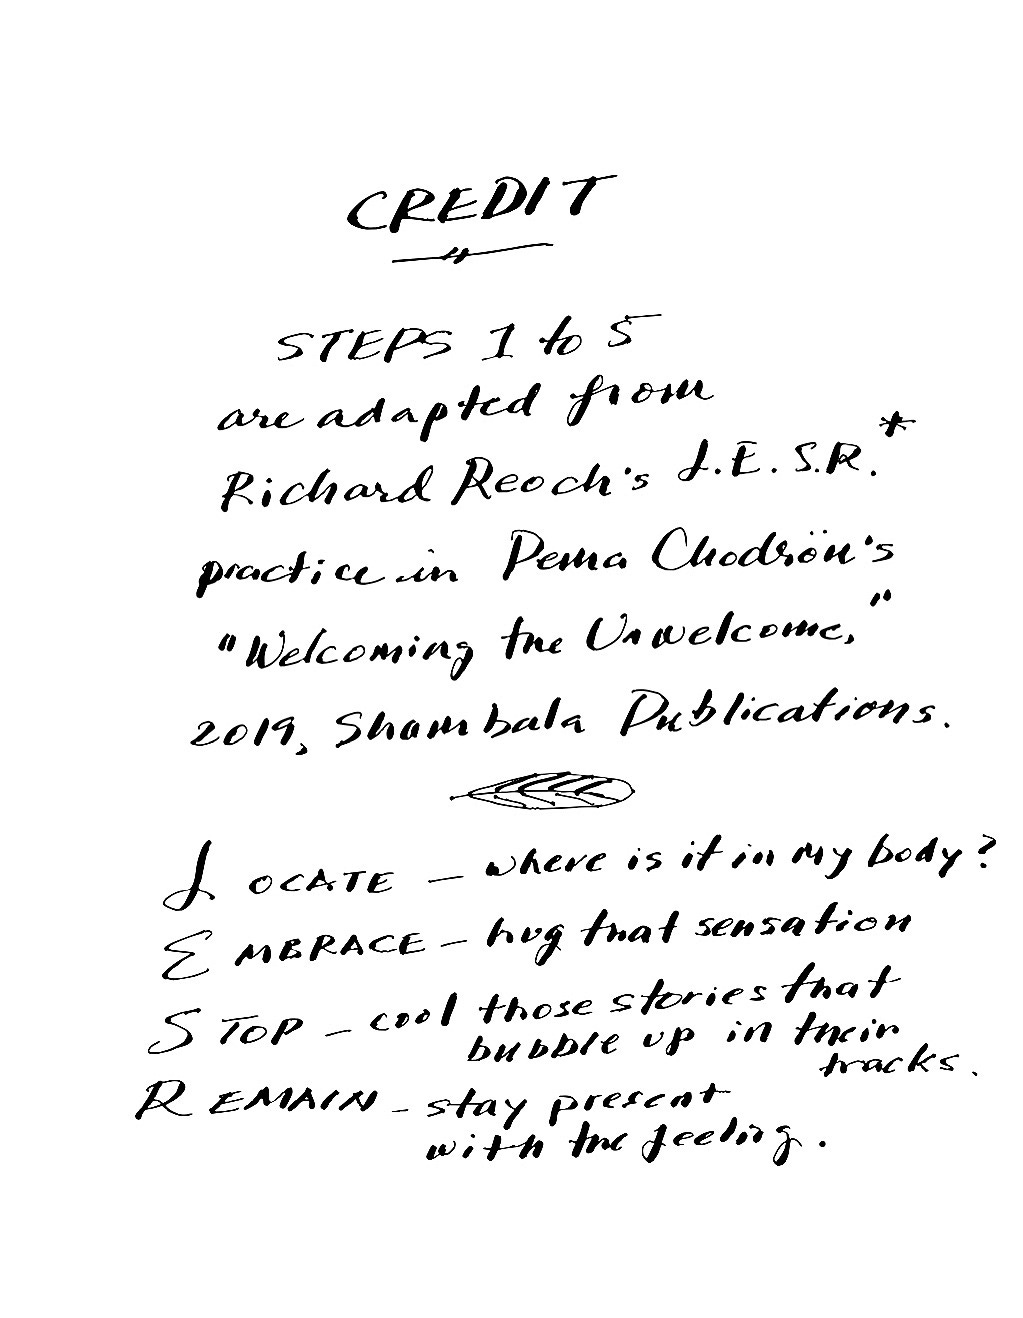 CREDIT
STEPS 1 to 5
are adapted from
Richard Reoch's L.E.S.R.*
practice in Pema Chodrön's
"Welcoming the Unwelcome,"
2019, Shambala Publications.
LOCATE – where is it in my body?
EMBRACE – hug that sensation
STOP – cool those stories that
bubble up in their
tracks.
REMAIN – stay present
with the feeling.